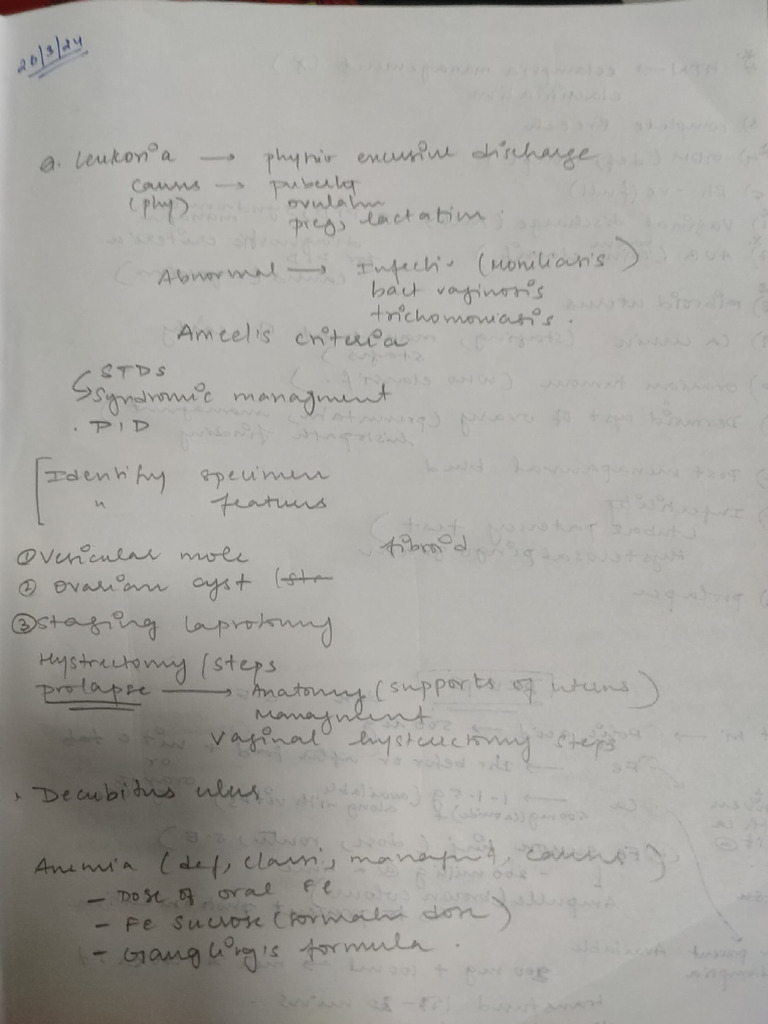 20/3/24
a. Leukoria → physio excessive discharge
causes → puberty
(phy) ovulation
preg, lactation
Abnormal → Infectio (Moniliasis)
bact vaginosis
trichomoniasis.
Amcel's criteria
↳ STDS
Syndromic managment
. PID
[Identify specimen
" features
① Vesicular mole fibroid
② ovarian cyst
③ staging laprotomy
Hystrectomy (steps
prolapse → Anatomy (supports of uterus)
Managment
Vaginal hysterectomy steps
. Decubitus ulcus
Anemia (def, classi, managmt, causes)
- Dose of oral Fe
- Fe sucrose (formula dose)
- Ganglirg's formula.